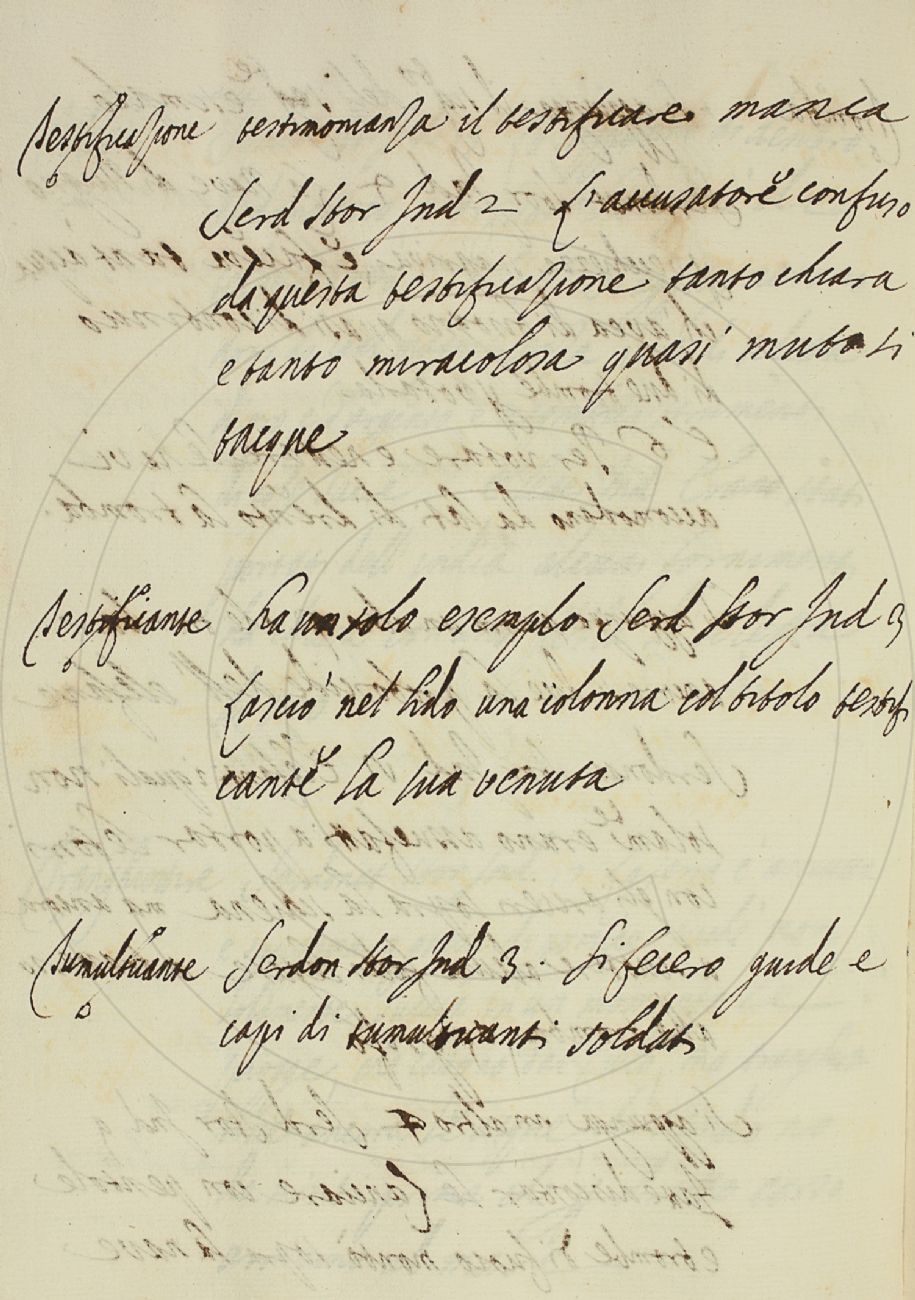 Testificazione testimonianza il testificare. manca
Serd Stor Ind 2 L'accusatore confuso
da questa testificazione tanto chiara
e tanto miracolosa quasi muto si
tacque
Testificante ha un solo esempio Serd Stor Ind 3
Lasciò nel lido una colonna col titolo testifi
cante la sua venuta
Tumultuante Serdon Stor Ind 3. Si fecero guide e
capi di tumultuanti soldati